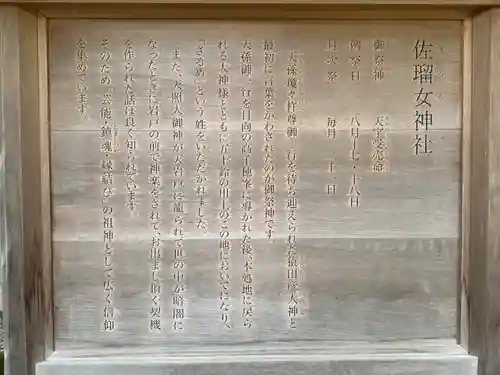 佐瑠女神社
さるめ
御祭神 天宇受売命
例祭日 八月十七・十八日
月次祭 毎月 十一日
天孫瓊々杵尊御一行を待ち迎えられた猿田彦大神と
最初に言葉をかわされたのが御祭神です。
天孫御一行を日向の高千穂峯に導かれた後、本処地に戻ら
れる大神様とともに五十鈴の川上のこの地においでになり、
“さるめ”という姓をいただかれました。
また、天照大御神が天岩戸に籠られて世の中が暗闇に
なったときに岩戸の前で神楽をされて、お出まし頂く契機
を作られた話は良く知られています。
そのため“芸能・鎮魂・縁結び”の祖神として広く信仰
を集めています。